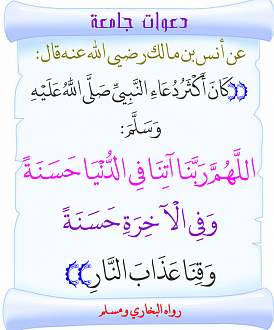 دعوات جامعة
عن أنس بن مالك رضي الله عنه قال:
((كَانَ أَكْثَرُ دُعَاءِ النَّبِيِّ صَلَّى اللَّهُ عَلَيْهِ
وَسَلَّمَ:
اللَّهُمَّ رَبَّنَا آتِنَا فِي الدُّنْيَا حَسَنَةً
وَفِي الْآخِرَةِ حَسَنَةً
وَقِنَا عَذَابَ النَّارِ))
رواه البخاري ومسلم